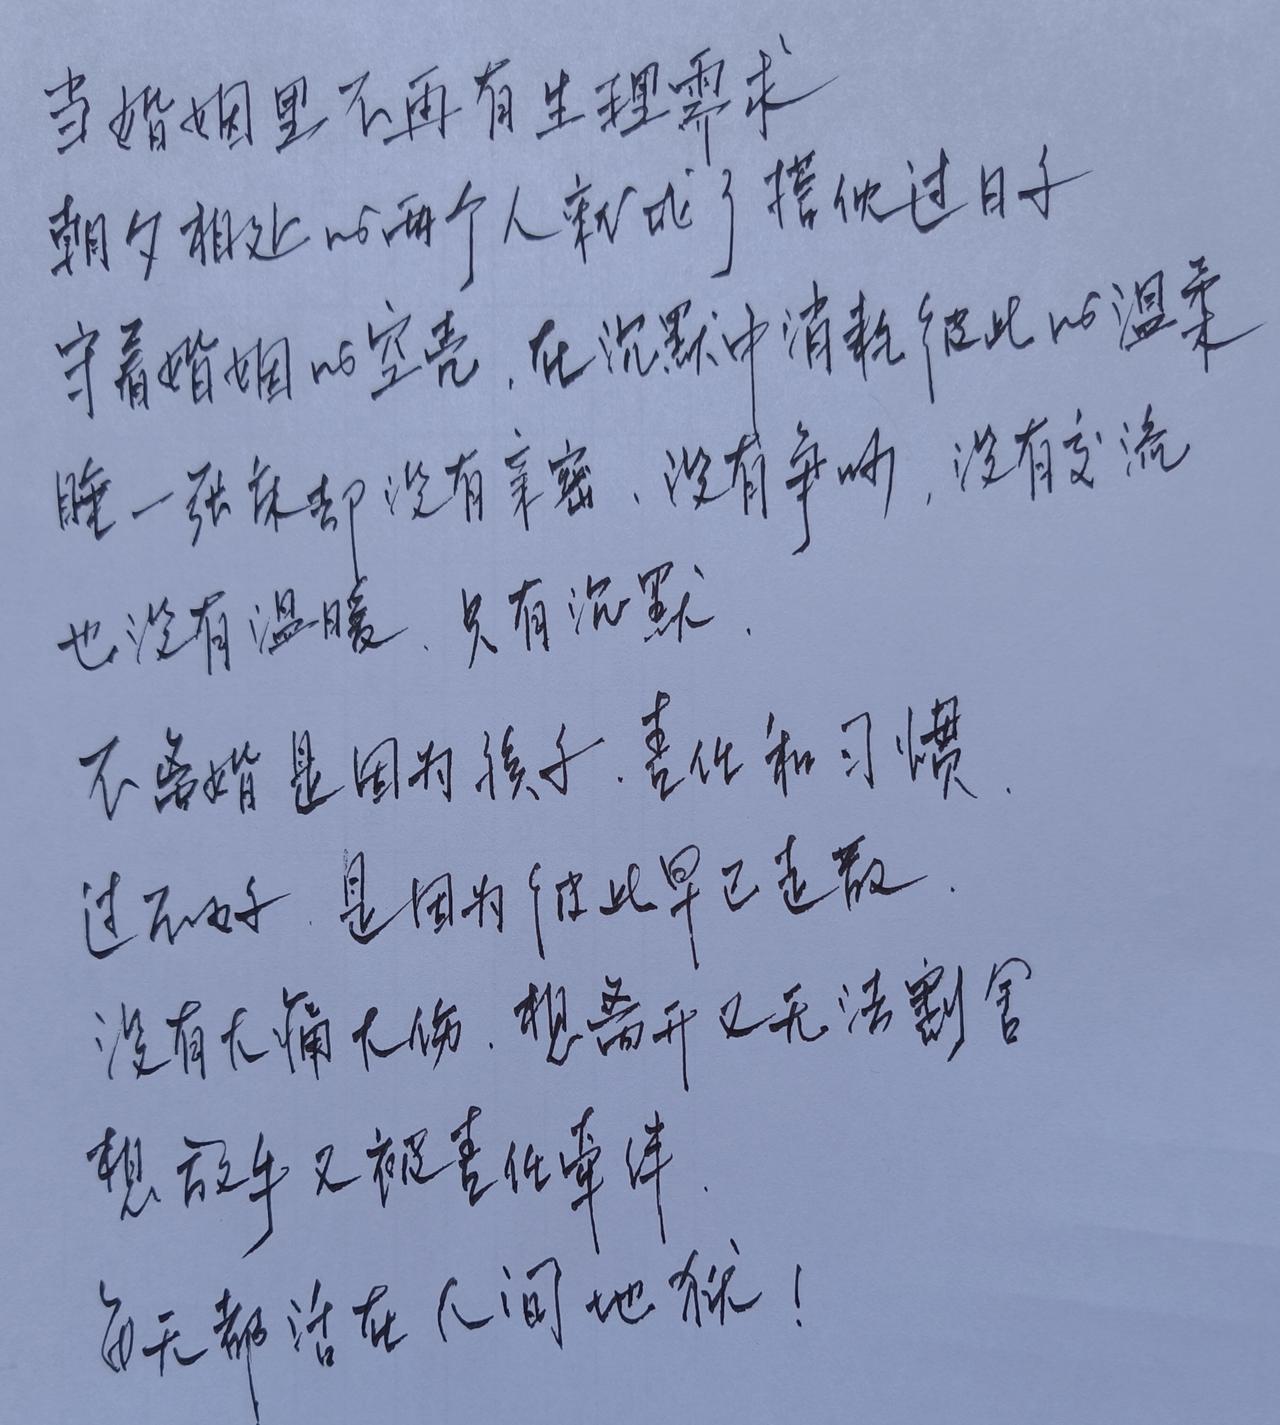 当婚姻里不再有生理需求
朝夕相处的两个人就成了搭伙过日子
守着婚姻的空壳,在沉默中消耗彼此的温柔
睡一张床却没有亲密,没有争吵,没有交流
也没有温暖,只有沉默.
不离婚是因为孩子,责任和习惯.
过不好,是因为彼此早已走散.
没有大痛大伤,想离开又无法割舍
想放手又被责任牵绊.
每天都活在人间地狱!